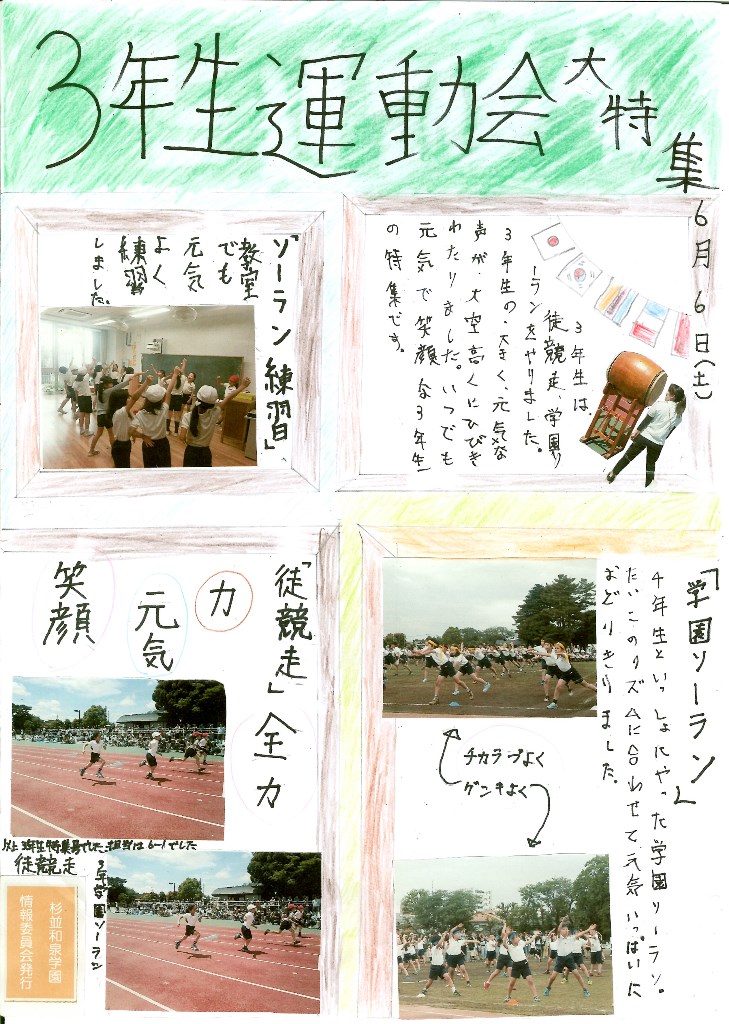 3年生運動会大特集
6月6日(土)
3年生は、
徒競走、学園ソ
ーランをやりました。
3年生の、大きく、元気な
声が、大空高くにひびき
わたりました。いつでも
元気で笑顔な3年生
の特集です。
「ソーラン練習」
教室
でも
元気
よく
練習
しました。
「学園ソーラン」
4年生といっしょにやった学園ソーラン。
たいこのリズムに合わせて元気いっぱいに
おどりきりました。
チカラヅよく
ゲンキよく
「徒競走」全力
力
元気
笑顔
以上3年生特集号でした。担当は6-1でした
徒競走
3年学園ソーラン
杉並和泉学園
情報委員会発行